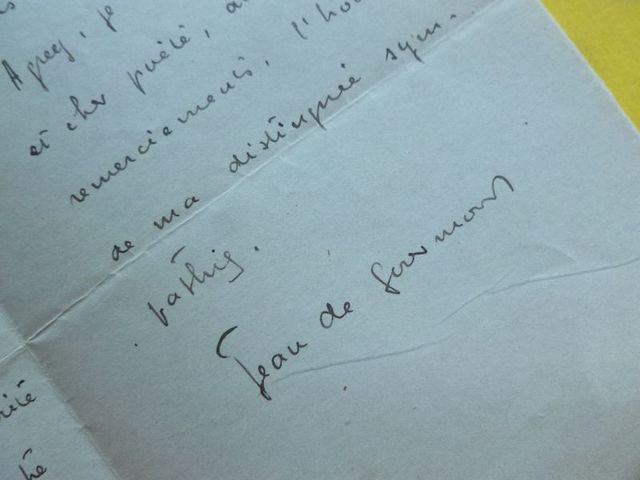 Agréez, je
et cher poète, a
remerciements, l'ho
de ma distinguée sym-
pathie.
Jean de Gourmont